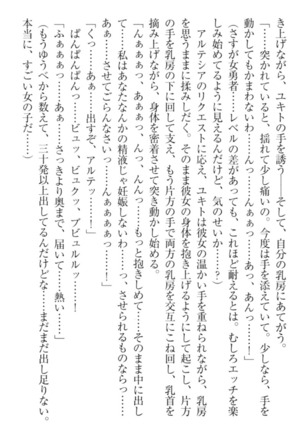 き上げながら、ユキトの手を誘う――そして、自分の乳房にあてがう。
「……突かれていると、揺れて少し痛いの。今度は手を添えていて。少しなら、手を
動かしてもかまわないわ……んぁぁっ……あっ……あんっ……！」
(さすが女勇者……レベルの差があっても、これほど耐えるとは。むしろエッチを楽
しみ始めてるように見えるんだけど、気のせいか……？)
アルテシアのリクエストに応え、ユキトは彼女の温かい手を重ねられながら、乳房
を思うままに揉みしだく。そのまま彼女の身体を抱き上げるようにして起こし、片方
の手を乳房の下に回して支え、もう片方の手で両方の乳房を交互にこね回し、乳首を
摘み上げながら、身体を密着させて突き動かし始める。
「んぁぁぁっ、あっ、んっ、んんっ……もっと抱きしめて……そのまま中に出し
て……私はあなたなんかの精液じゃ妊娠しないわ……っ、させられるものならっ……
あっ……させてごらんなさいっ……！」
「くっ……あっ……出すぞ、アルテッ……！」
ぱんぱんぱんっ……ビュッ、ビュクッ、ブビュルルッ……！
「ふぁぁぁっ……あぁ……さっきより奥まで、届いて……熱い……」
(もうゆうべから数えて、三十発以上出してるんだけどな……まだまだ出し足りない。
本当に、すごい女の子だ……！)